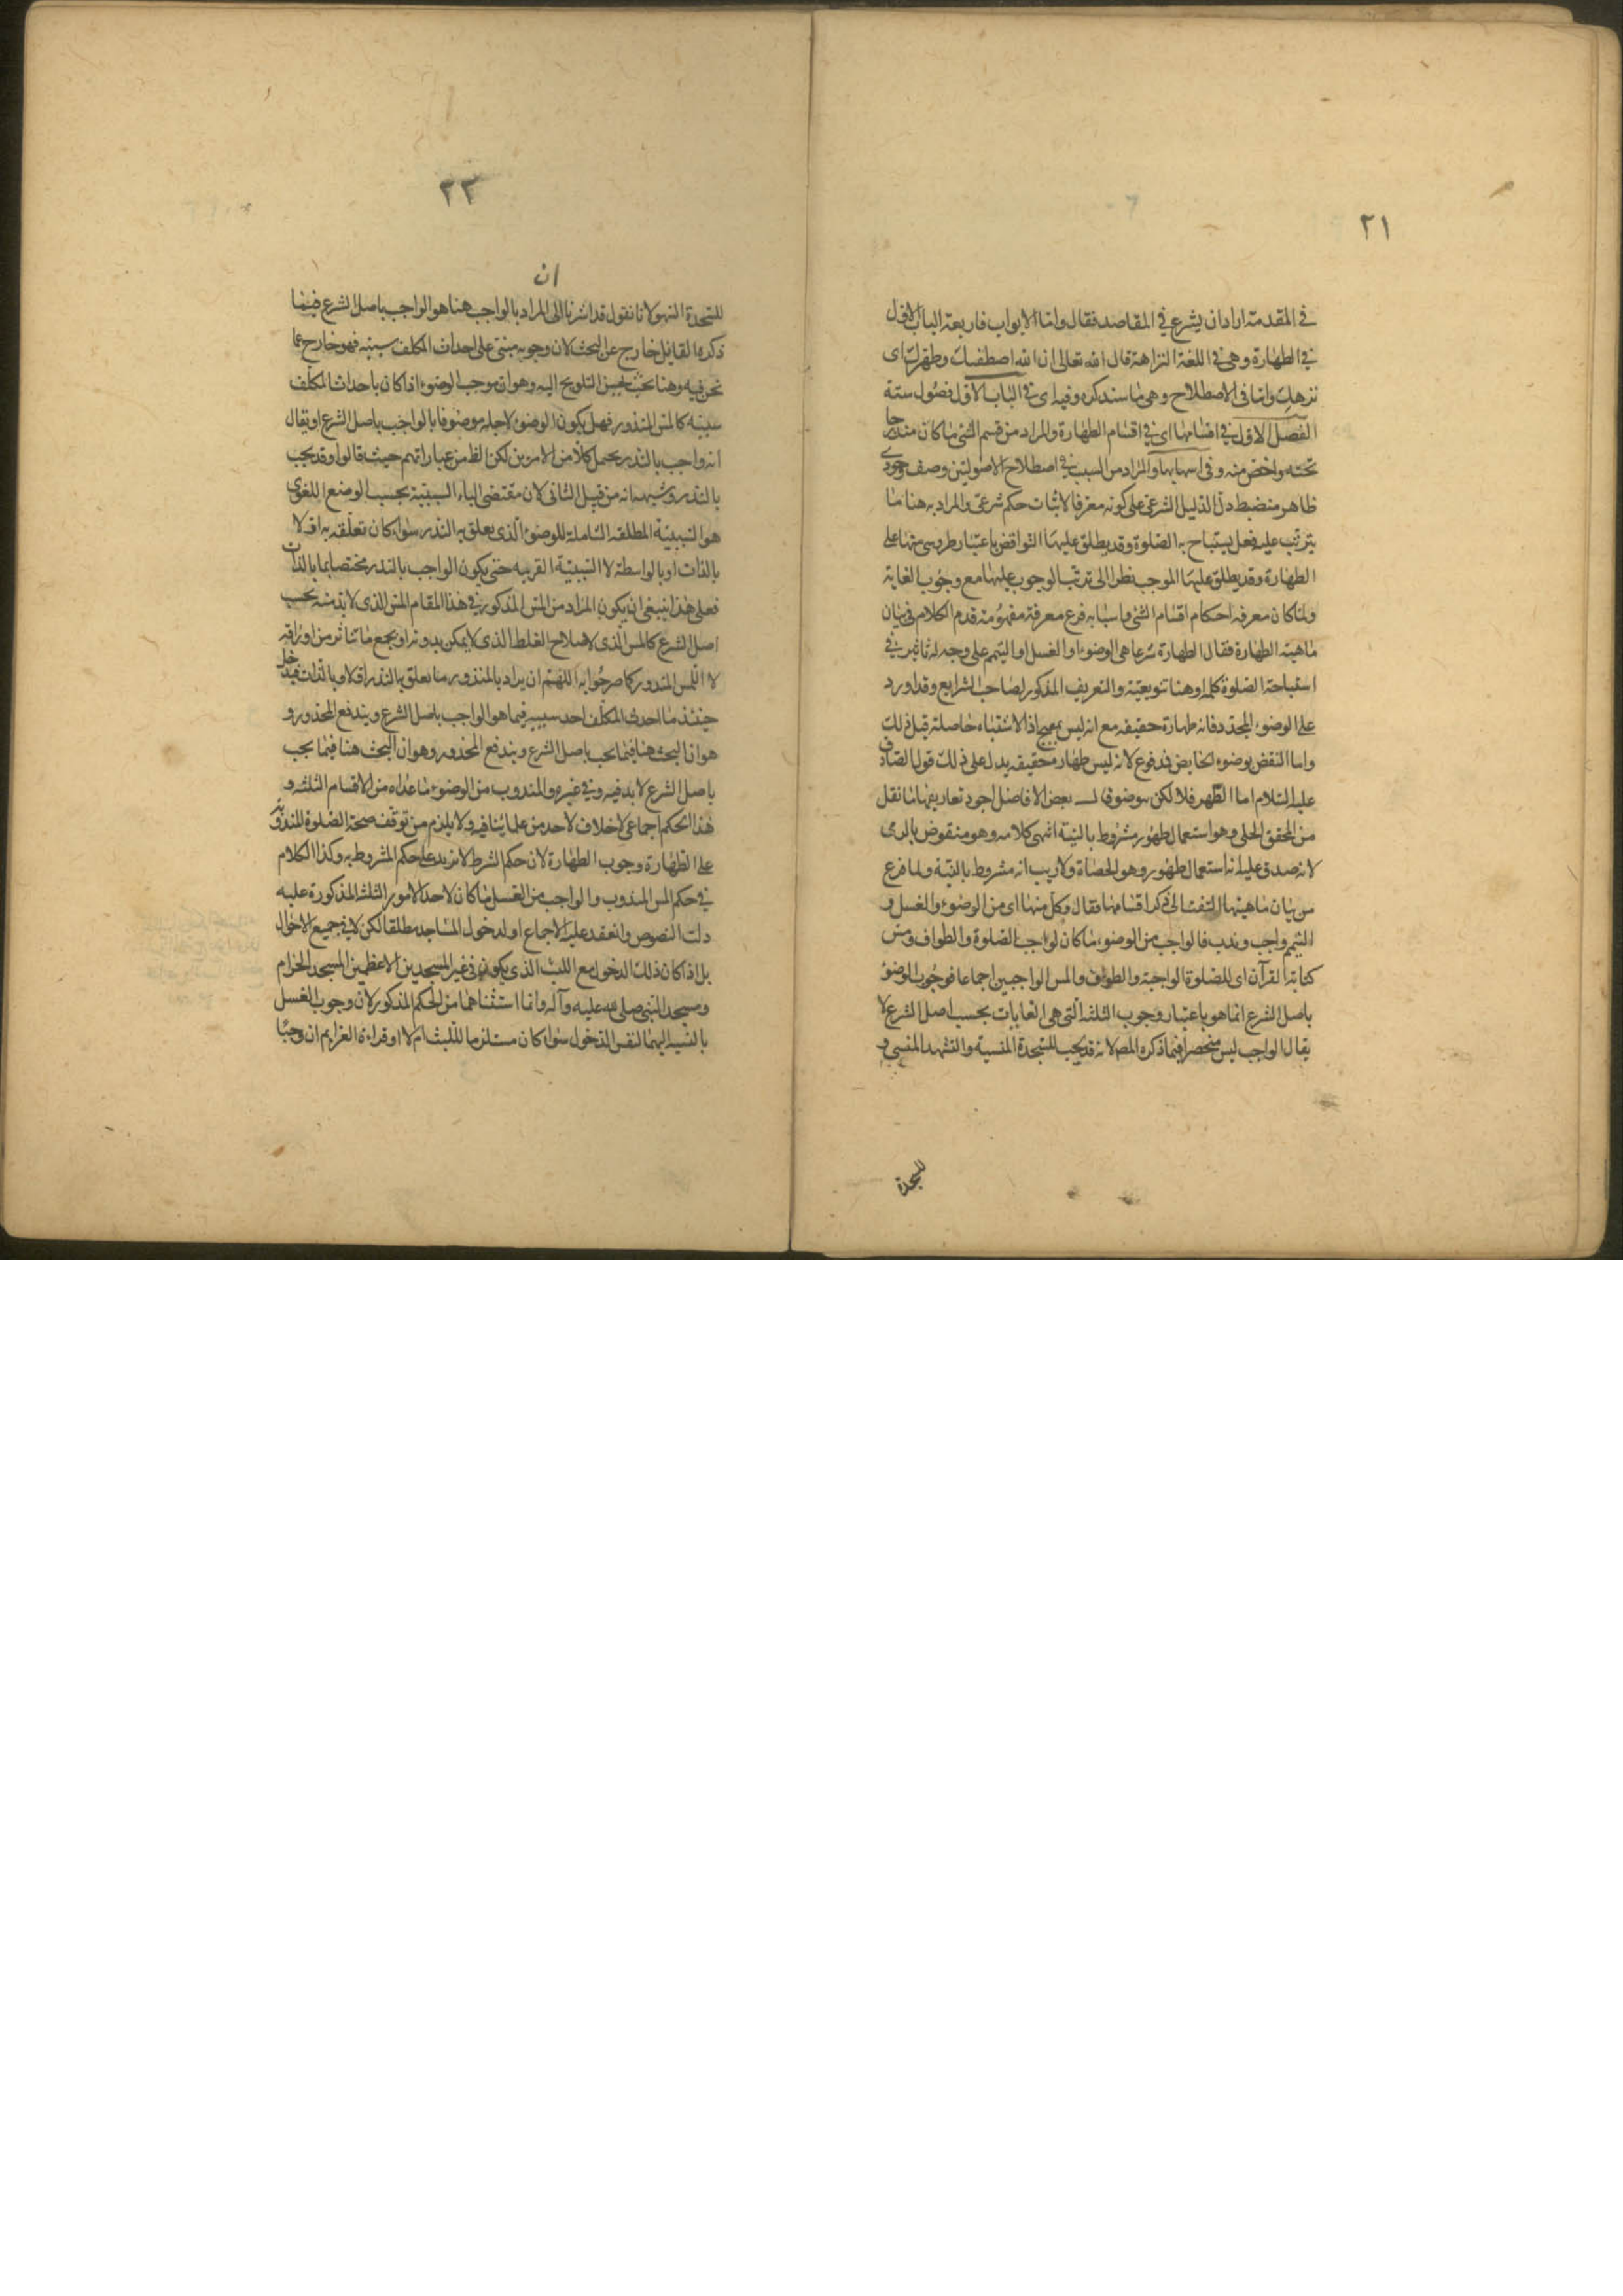 ٢١
في المقدمة اراد ان يشرع في المقاصد فقال واما الابواب فاربعة الباب الاول
في الطهارة وهي في اللغة النزاهة قال الله تعالى ان الله اصطفك وطهرك اى
نزهك واما في الاصطلاح وهي ما سنذكره وفيه اى في الباب الاول فصول ستة
الفصل الاول في اقسامها اى في اقسام الطهارة والمراد من قسم الشئ ما كان مندرجا
تحته واخص منه وفى اسبابها والمراد من السبب في اصطلاح الاصوليين وصف وجودى
ظاهر منضبط دل الدليل الشرعى على كونه معرفا لاثبات حكم شرعى والمراد به هنا ما
يترتب عليه فعل يستباح به الصلوة وقد يطلق عليها النواقض باعتبار طروسها على
الطهارة وقد يطلق عليها الموجب نظرا الى ترتب الوجوب عليها مع وجوب الغاية
ولما كان معرفه احكام اقسام الشئ واسبابه فرع معرفة مفهومه قدم الكلام في بيان
ماهية الطهارة فقال الطهارة شرعا هى الوضوء او الغسل او التيمم على وجه له تاثير في
استباحة الصلوة كلمة او هنا تنويعية والتعريف المذكور لصاحب الشرايع وقد اورد
على الوضوء المجدد فانه طهارة حقيقه مع انه ليس بمبيح اذ الاستباحة حاصلة قبل ذلك
واما النقض بوضوء الحايض فمدفوع لانه ليس طهارة حقيقه يدل على ذلك قول الصادق
عليه السلام اما الطهر فلا لكن بوضوء قال بعض الافاضل اجود تعاريفها ما نقل
من المحقق الحلى وهو استعمال طهور مشروط بالنية انتهى كلامه وهو منقوض بالرمى
لانه صدق عليه انه استعمال طهور وهو الحصاة ولا ريب انه مشروط بالنية ولما فرغ
من بيان ماهيتها التفت الى ذكر اقسامها فقال وكل منها اى من الوضوء والغسل و
التيمم واجب وندب فالواجب من الوضوء ما كان لواجب الصلوة والطواف ومس
كتابة القرآن اى للصلوة الواجبة والطواف والمس الواجبين اجماعا فوجوب الوضوء
باصل الشرع انما هو باعتبار وجوب الثلثة التى هى الغايات بحسب اصل الشرع لا
يقال الواجب ليس منحصرا فيما ذكره المص لانه قد يجب للسجدة المنسية والتشهد المنسى و
للسجدة
٢٣
ان
للسجدة السهو لانا نقول قد اشرنا الى المراد بالواجب هنا هو الواجب باصل الشرع فيما
ذكره القائل خارج عن البحث لان وجوبه مبنى على احداث المكلف سببه فهو خارج عما
نحن فيه وهنا بحث يحسن التلويح اليه وهو ان موجب الوضوء اذا كان باحداث المكلف
سببه كالمس المنذور فهل يكون الوضوء لاجله موصوفا بالواجب باصل الشرع او يقال
انه واجب بالنذر يحمل كلا من الامرين لكن الظ من عباراتهم حيث قالوا وقد يجب
بالنذر وشبهه انه من قبيل الثانى لان مقتضى الباء السببية بحسب الوضع اللغوى
هو السببية المطلقه الشاملة للوضوء الذى يعلق به النذر سواء كان تعلقه به اولا
بالذات او بالواسطة لا السببية القريبه حتى يكون الواجب بالنذر مختصا بما بالذات
فعلى هذا ينبغى ان يكون المراد من المس المذكور في هذا المقام المس الذى لا بد منه بحسب
اصل الشرع كالمس الذى لاصلاح الغلط الذى لا يمكن بدونه او يجمع ما تناثر من اوراقه
لا المس المنذور كما صرحوا به اللهم ان يراد بالمنذور ما يعلق به النذر اولا وبالذات فيدخل
حينئذ ما احدث المكلف احد سببيه فيما هو الواجب باصل الشرع ويندفع المحذور و
هو ان البحث هنا فيما يجب باصل الشرع ويندفع المحذور وهو ان البحث هنا فيما يجب
باصل الشرع لا بد فيه وفي غيره والمندوب من الوضوء ما عداه من الاقسام الثلثة و
هذا الحكم اجماعى لا خلاف لاحد من علمائنا فيه ولا يلزم من توقف صحة الصلوة المندوبة
على الطهارة وجوب الطهارة لان حكم الشرط لا يزيد على حكم المشروط به وكذا الكلام
في حكم المس المندوب والواجب من الغسل ما كان لاحد الامور الثلثة المذكورة عليه
دلت النصوص وانعقد عليه الاجماع او لدخول المساجد مطلقا لكن لا في جميع الاحوال
بل اذا كان ذلك الدخول مع اللبث الذى يكون في غير المسجدين الاعظمين المسجد الحرام
ومسجد النبى صلى الله عليه وآله وانما استثناهما من الحكم المذكور لان وجوب الغسل
بالنسبه اليهما لنفس الدخول سواء كان مستلزما للبث ام لا او قراءة العزايم ان وجبا